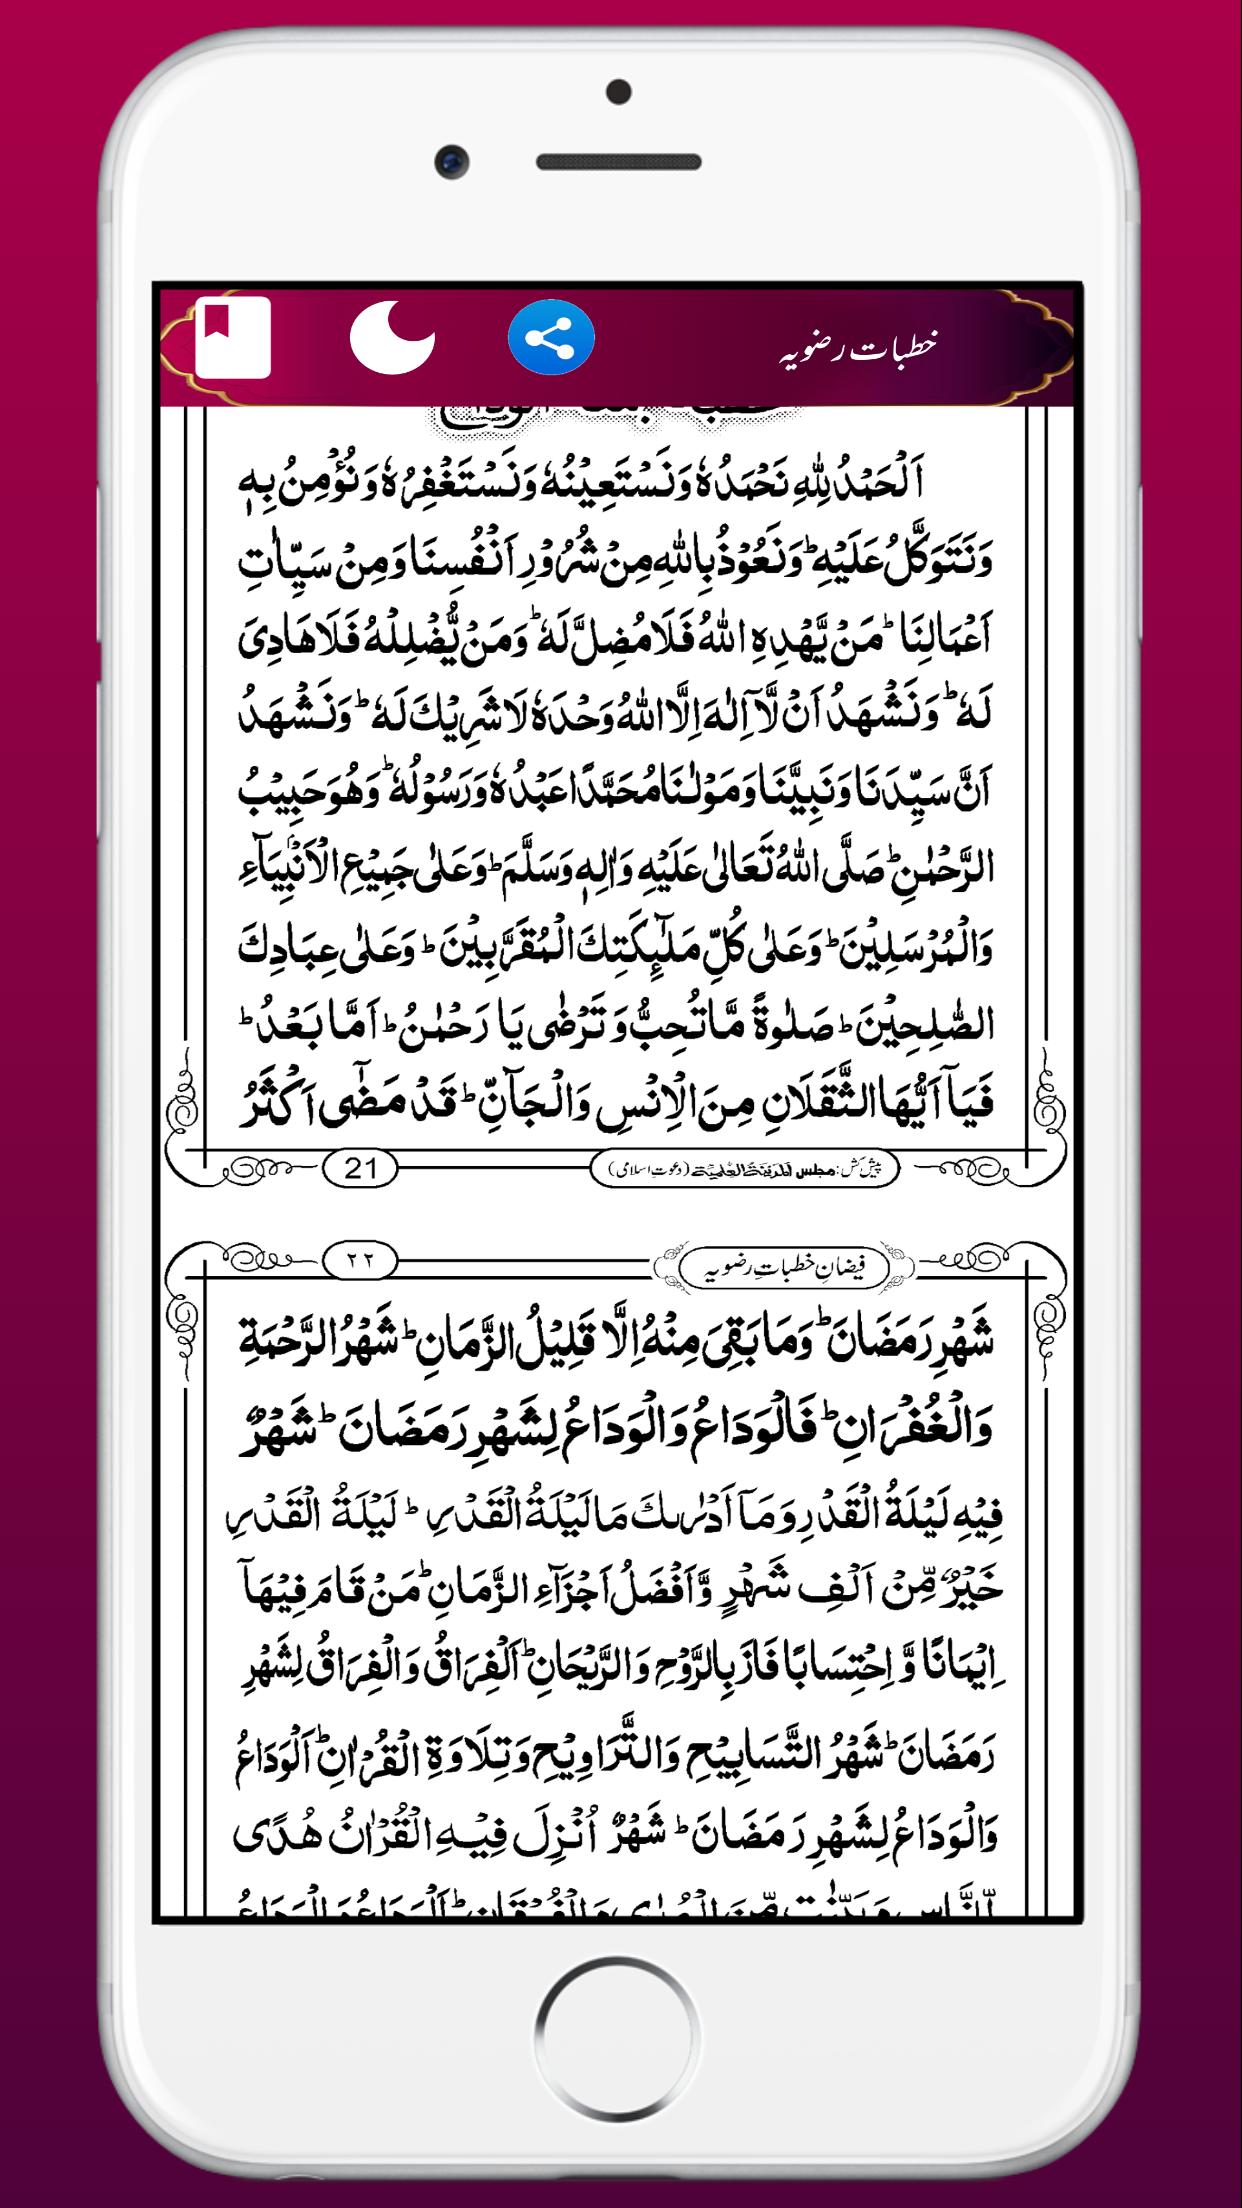 خطبات رضویہ
اَلْحَمْدُ لِلّٰهِ نَحْمَدُهٗ وَنَسْتَعِيْنُهٗ وَنَسْتَغْفِرُهٗ وَنُؤْمِنُ بِهٖ
وَنَتَوَكَّلُ عَلَيْهِ ؕ وَنَعُوْذُ بِاللّٰهِ مِنْ شُرُوْرِ اَنْفُسِنَا وَمِنْ سَيِّاٰتِ
اَعْمَالِنَا ؕ مَنْ يَّهْدِهِ اللّٰهُ فَلَا مُضِلَّ لَهٗ ؕ وَمَنْ يُّضْلِلْهُ فَلَا هَادِىَ
لَهٗ ؕ وَنَشْهَدُ اَنْ لَّاۤ اِلٰهَ اِلَّا اللّٰهُ وَحْدَهٗ لَا شَرِيْكَ لَهٗ ؕ وَنَشْهَدُ
اَنَّ سَيِّدَنَا وَنَبِيَّنَا وَمَوْلٰنَا مُحَمَّدًا عَبْدُهٗ وَرَسُوْلُهٗ ؕ وَهُوَ حَبِيْبُ
الرَّحْمٰنِ ؕ صَلَّى اللّٰهُ تَعَالٰى عَلَيْهِ وَاٰلِهٖ وَسَلَّمَ ؕ وَعَلٰى جَمِيْعِ الْاَنْۢبِيَآءِ
وَالْمُرْسَلِيْنَ ؕ وَعَلٰى كُلِّ مَلٰٓئِكَتِكَ الْمُقَرَّبِيْنَ ؕ وَعَلٰى عِبَادِكَ
الصّٰلِحِيْنَ ؕ صَلٰوةً مَّا تُحِبُّ وَتَرْضٰى يَا رَحْمٰنُ ؕ اَمَّا بَعْدُ ؕ
فَيَاۤ اَيُّهَا الثَّقَلَانِ مِنَ الْاِنْسِ وَالْجَآنِّ ؕ قَدْ مَضٰٓى اَكْثَرُ
پیش کش : مجلس المدینۃ العلمیۃ (دعوتِ اسلامی) 21
فیضانِ خطباتِ رضویہ ۲۲
شَهْرِ رَمَضَانَ ؕ وَمَا بَقِىَ مِنْهُ اِلَّا قَلِيْلُ الزَّمَانِ ؕ شَهْرُ الرَّحْمَةِ
وَالْغُفْرَانِ ؕ فَالْوَدَاعُ وَالْوَدَاعُ لِشَهْرِ رَمَضَانَ ؕ شَهْرٌ
فِيْهِ لَيْلَةُ الْقَدْرِ وَمَاۤ اَدْرٰىكَ مَا لَيْلَةُ الْقَدْرِ ؕ لَيْلَةُ الْقَدْرِ
خَيْرٌ مِّنْ اَلْفِ شَهْرٍ وَّاَفْضَلُ اَجْزَآءِ الزَّمَانِ ؕ مَنْ قَامَ فِيْهَاۤ
اِيْمَانًا وَّ اِحْتِسَابًا فَازَ بِالرَّوْحِ وَالرَّيْحَانِ ؕ اَلْفِرَاقُ وَالْفِرَاقُ لِشَهْرِ
رَمَضَانَ ؕ شَهْرُ التَّسَابِيْحِ وَالتَّرَاوِيْحِ وَتِلَاوَةِ الْقُرْاٰنِ ؕ اَلْوَدَاعُ
وَالْوَدَاعُ لِشَهْرِ رَمَضَانَ ؕ شَهْرٌ اُنْزِلَ فِيْهِ الْقُرْاٰنُ هُدًى
لِّلنَّاسِ وَبَيِّنٰتٍ مِّنَ الْهُدٰى وَالْفُرْقَانِ ؕ اَلْوَدَاعُ وَالْوَدَاعُ